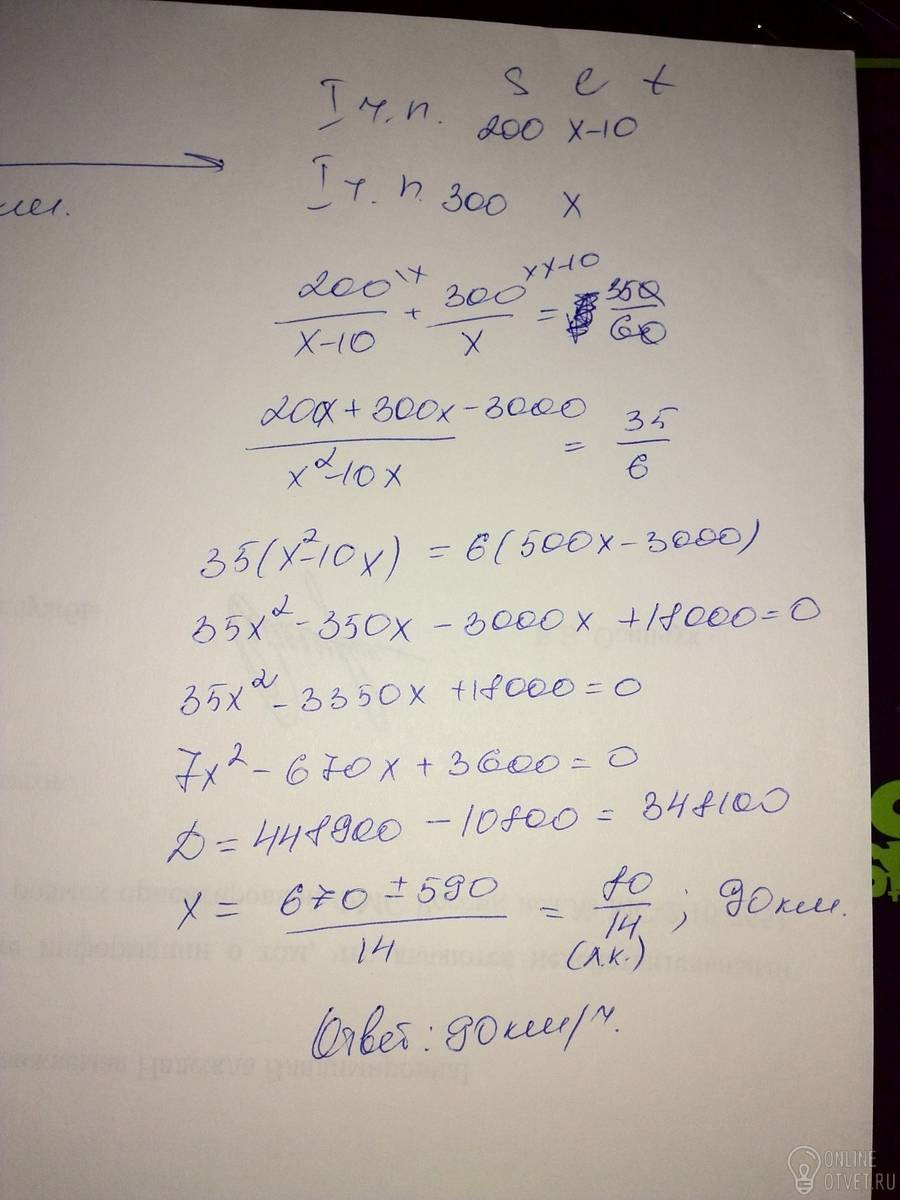 S v t
I ч.п. 200 x-10
I ч.п. 300 x
200\x / x-10 + 300\x-10 / x = 350/60
(200x+300x-3000) / (x²-10x) = 35/6
35(x²-10x) = 6(500x-3000)
35x²-350x-3000x+18000=0
35x²-3350x+18000=0
7x²-670x+3600=0
D=448900-10800=348100
x = (670±590)/14 = 80/14 ; 90км.
Ответ: 90км/ч.
ONLINE
OTVET.RU